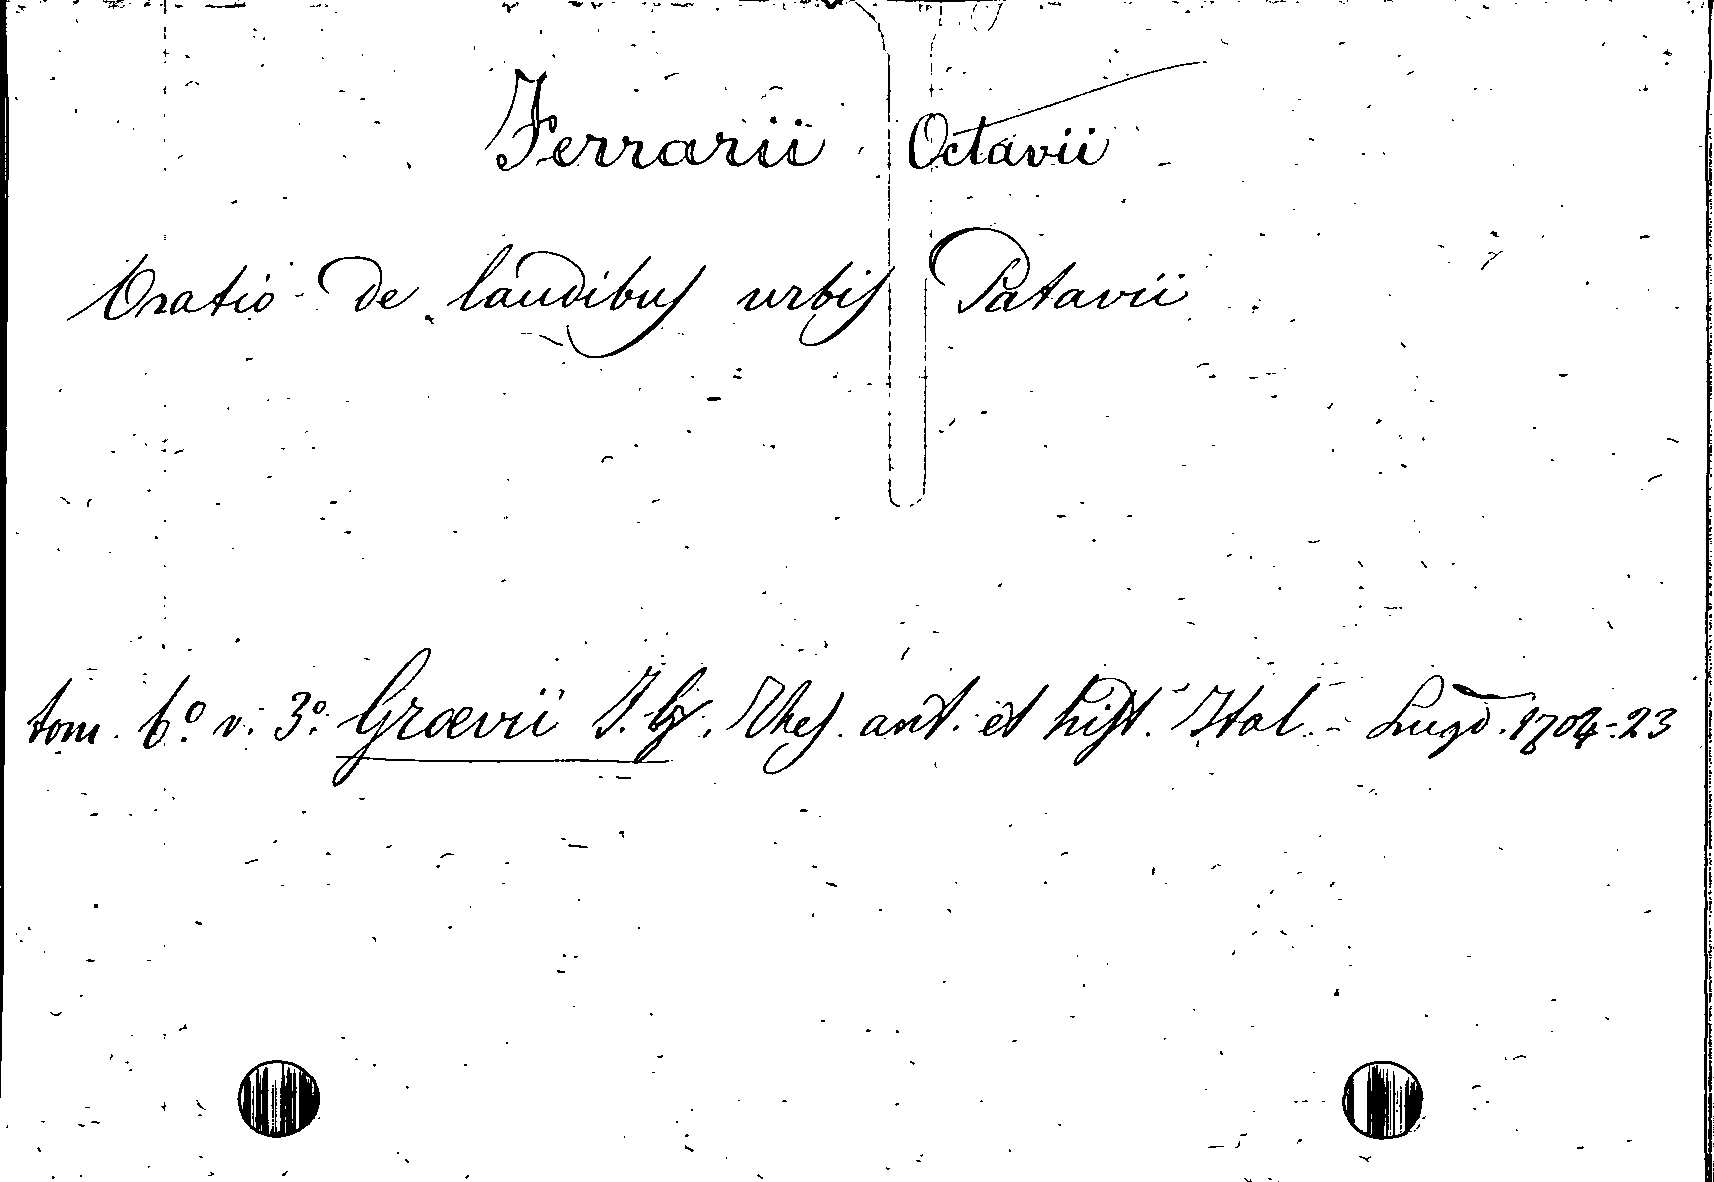 Ferrarii Octavii
Oratio de laudibus urbis Patavii
tom. 6º v. 3º Grævii J. G. Thes. ant. et hist. Ital. - Lugd. 1704-23